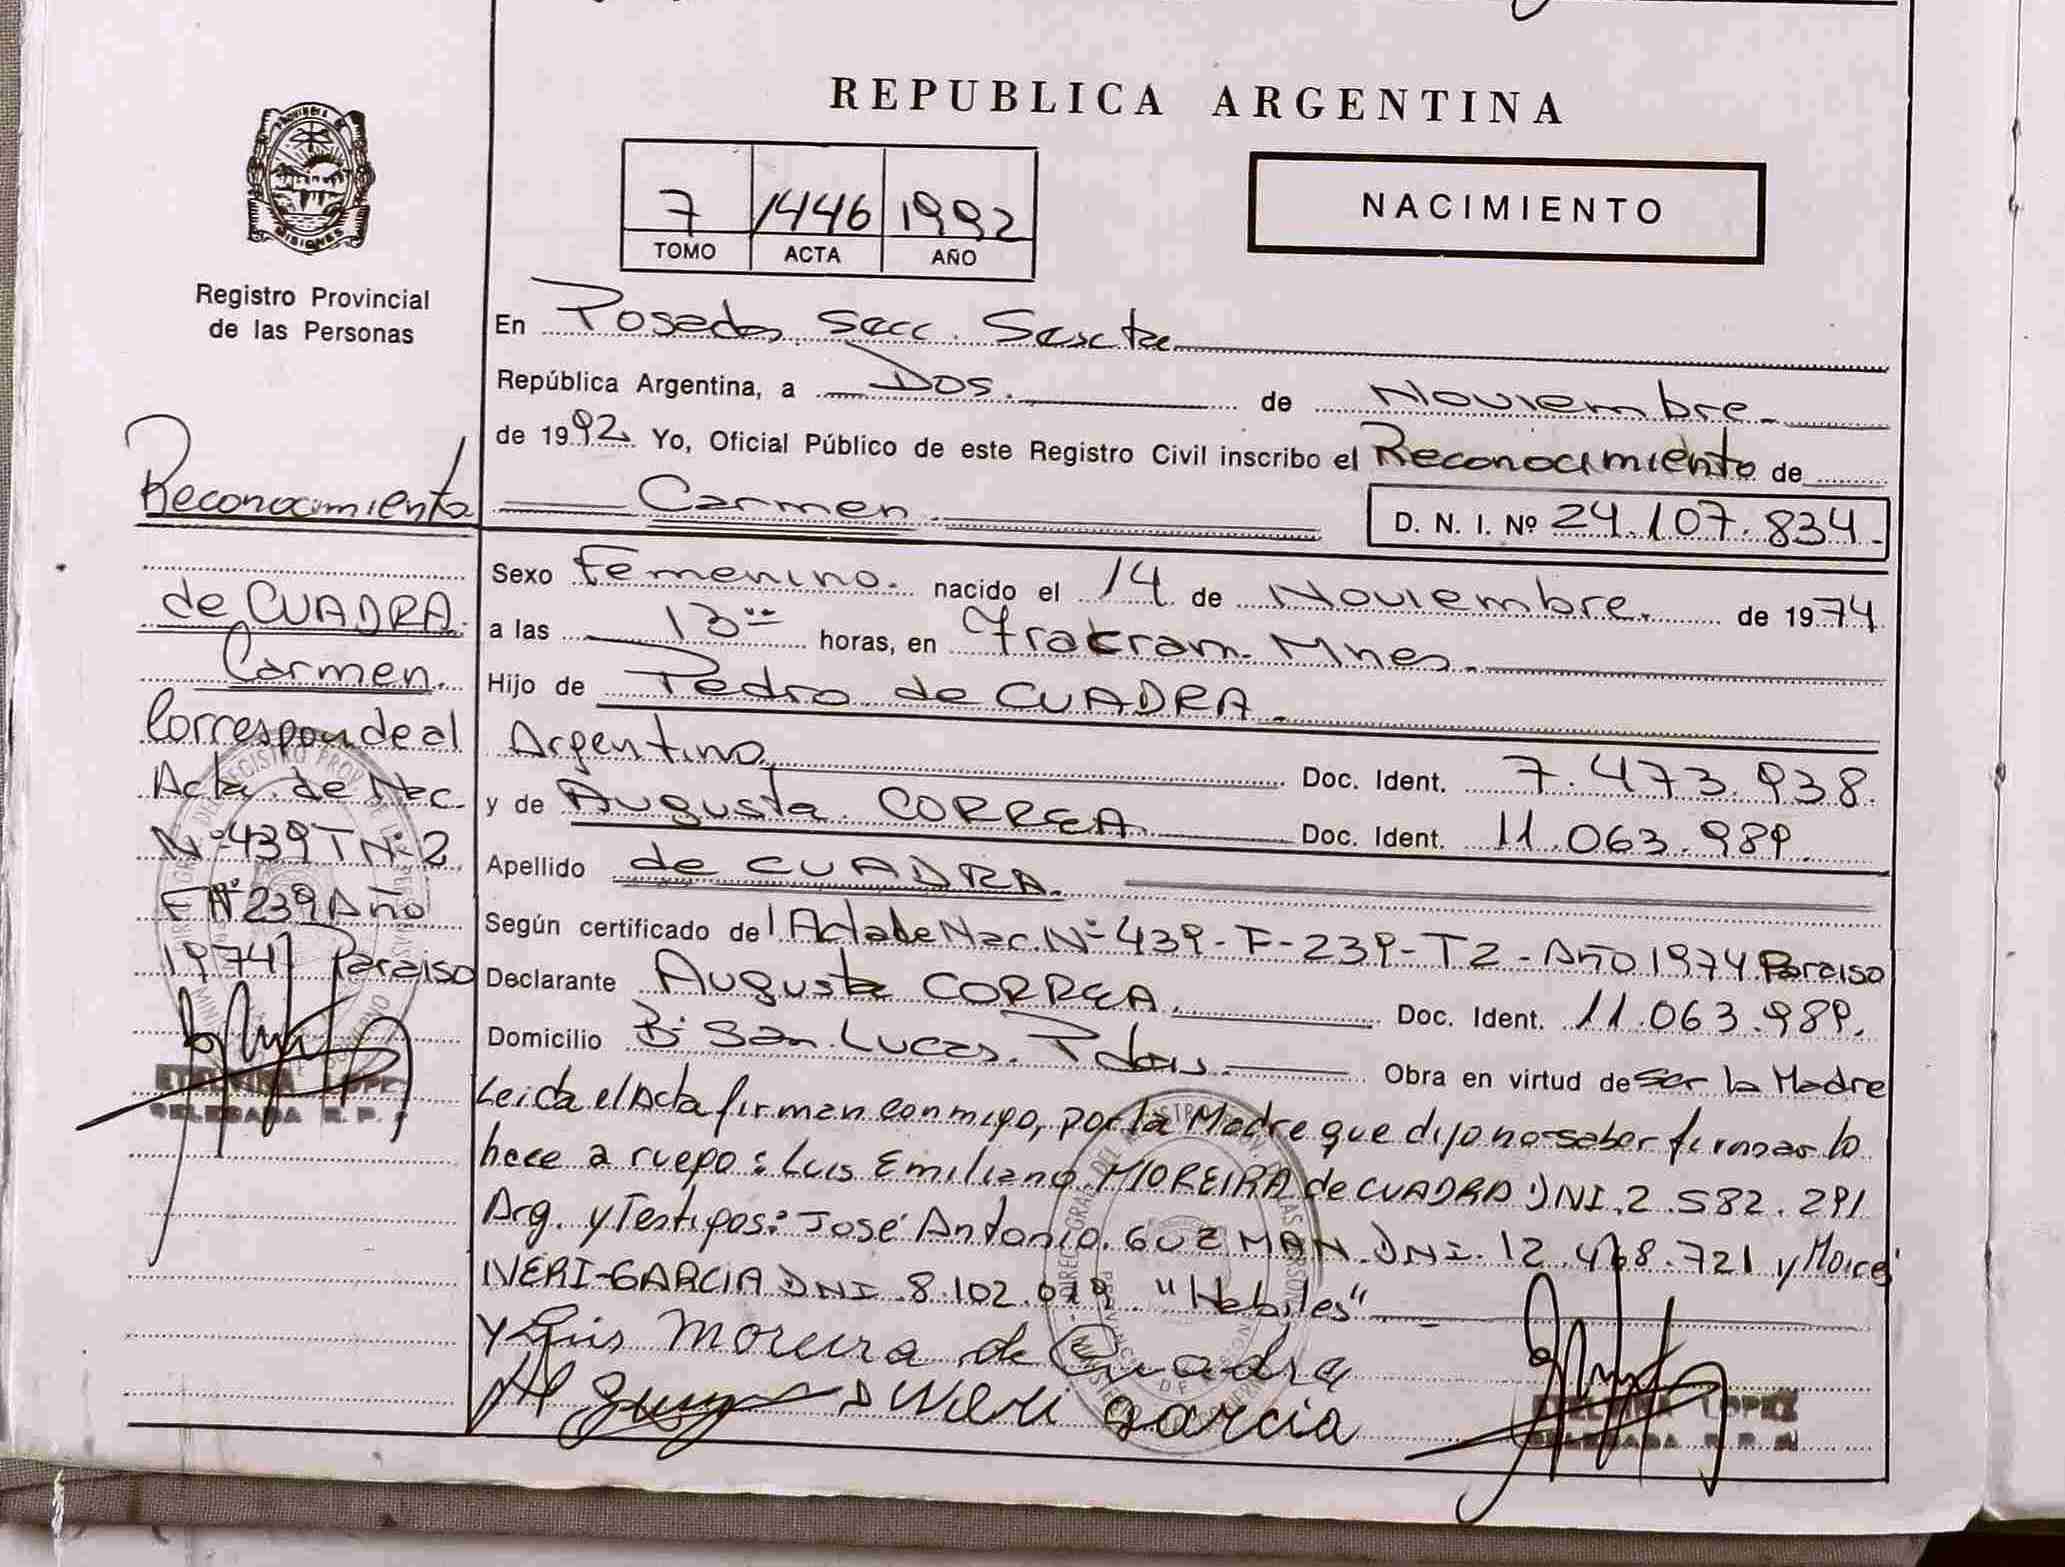 REPUBLICA ARGENTINA
NACIMIENTO
7 1446 1992
TOMO ACTA AÑO
MISIONES
Registro Provincial
de las Personas
Reconocimiento
de CUADRA
Carmen.
Corresponde al
Acta de Nac.
Nº 439 T Nº 2
F Nº 239 Año
1974 Paraiso
ETELVINA LOPEZ
DELEGADA R. P.
En Posadas Secc. Sexta
República Argentina, a Dos. de Noviembre
de 1992 Yo, Oficial Público de este Registro Civil inscribo el Reconocimiento de
Carmen. D. N. I. Nº 24.107.834.
Sexo Femenino. nacido el 14 de Noviembre. de 1974
a las 13 horas, en Fracran. Mnes.
Hijo de Pedro de CUADRA.
Argentino Doc. Ident. 7.473.938.
y de Augusta CORREA Doc. Ident. 11.063.989.
Apellido de CUADRA.
Según certificado del Acta de Nac. Nº 439-F-239-T2-Año 1974 Paraiso
Declarante Augusta CORREA. Doc. Ident. 11.063.989.
Domicilio Bº San Lucas. Pdas. Obra en virtud de ser la Madre
Leida el Acta firman conmigo, por la Madre que dijo no saber firmar lo
hace a ruego: Luis Emiliano MOREIRA de CUADRA DNI.2.582.291
Arg. y Testigos: José Antonio. GUZMAN. DNI. 12.468.721 y Moices
NERI-GARCIA DNI.8.102.019 "Habiles"
Luis Moreira de Cuadra
Neri Garcia
ETELVINA LOPEZ
DELEGADA R. P.